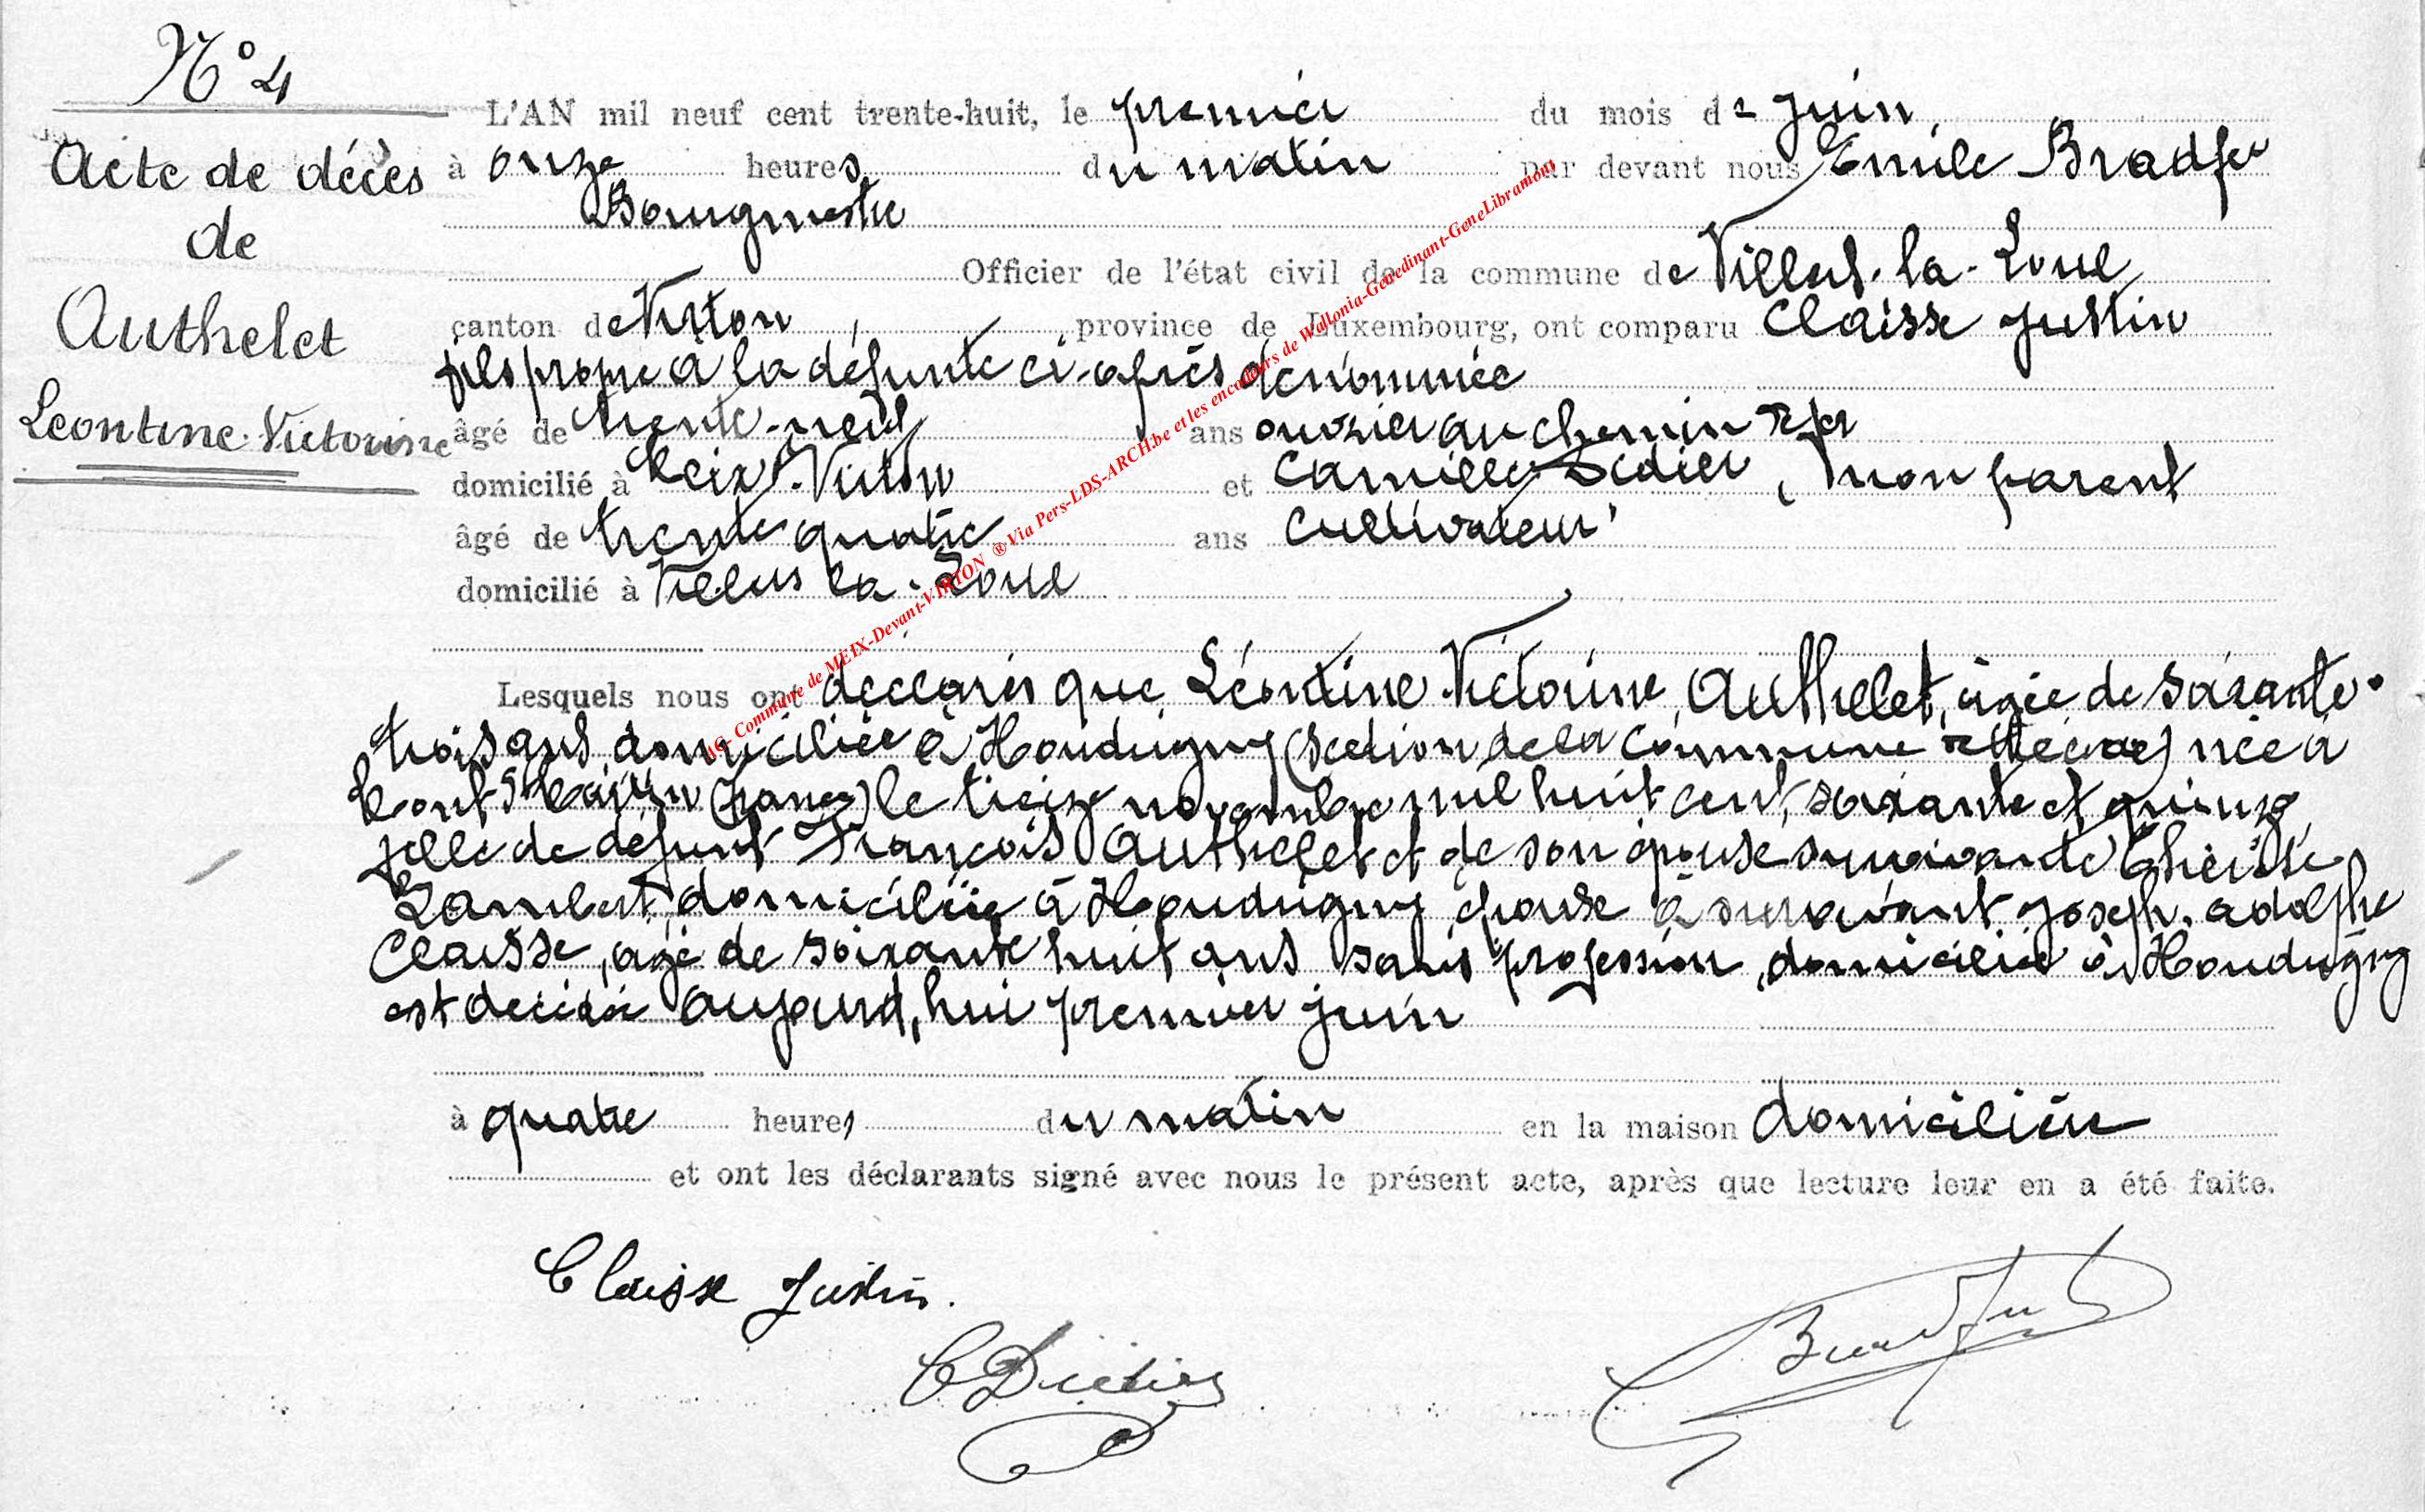 N° 4
Acte de décès
de
Authelet
Léontine-Victorine
L'AN mil neuf cent trente-huit, le premier du mois de juin,
à onze heures du matin par devant nous Emile Bradfer
Bourgmestre
Officier de l'état civil de la commune de Villers-la-Loue
canton de Virton, province de Luxembourg, ont comparu Claisse Justin
fils propre à la défunte ci-après dénommée
âgé de trente-neuf ans ouvrier au chemin de fer
domicilié à Meix-dt-Virton et Camille Didier, non parent
âgé de trente quatre ans cultivateur
domicilié à Villers la-Loue
Lesquels nous ont déclarés que Léontine-Victorine, Authelet, âgée de soixante-
trois ans domiciliée à Houdrigny (section de la commune ) née à
Mont St Martin (France) le treize novembre mil huit cent soixante et quinze
fille de défunt François Authelet et de son épouse survivante Thérèse
Lambert, domiciliée à Houdrigny, épouse à survivant Joseph, adolphe
Claisse, âgé de soixante huit ans sans profession, domicilié à Houdrigny
est décédée aujourd'hui premier juin
à quatre heures du matin en la maison domiciliaire
et ont les déclarants signé avec nous le présent acte, après que lecture leur en a été faite.
Claisse Justin.
C Didier
Bradfer
AG-Commune de MEIX-Devant-VIRTON ® Via Pers-LDS-ARCH.be et les encodeurs de Wallonia-Genedinant-GeneLibramont